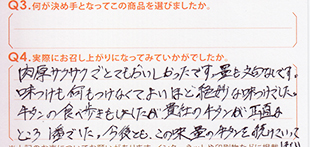 Q3.何が決め手となってこの商品を選びましたか。
Q4.実際にお召し上がりになってみていかがでしたか。
肉厚サクサクでとてもおいしかったです。量も文句なしです。
味つけも何もつけなくてよいほど絶妙な味つけでした。
牛タンの食べ歩きもしましたが貴社の牛タンが正直な
ところ 1番でした。今後とも、この味、量の牛タンを続けていって
ほしい